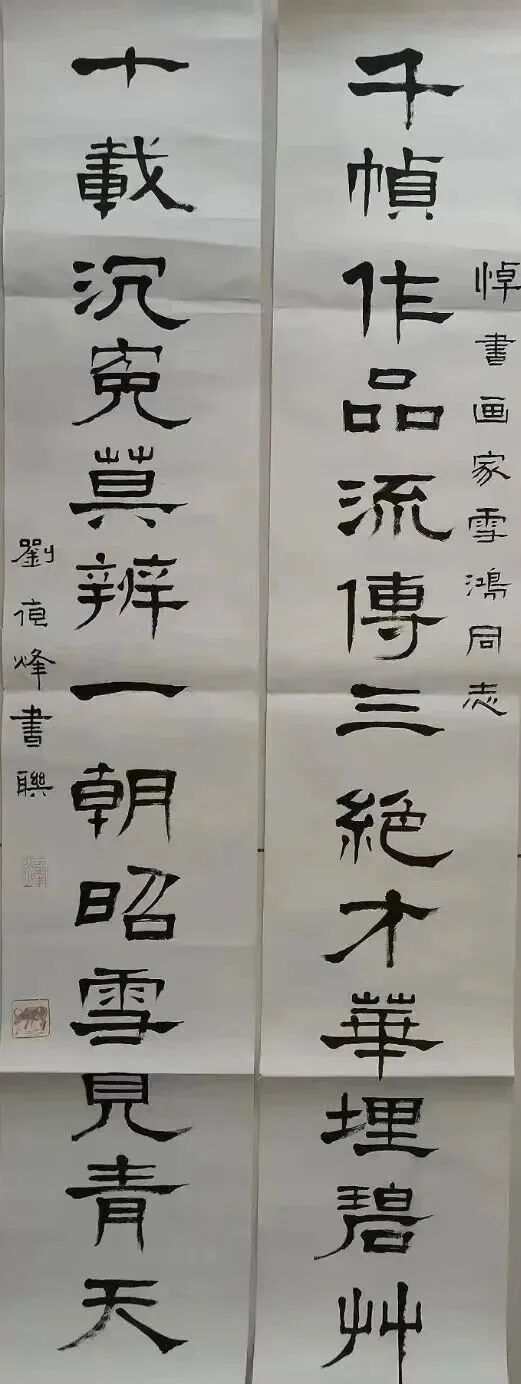 悼書画家雪鴻同志
千幀作品流傳三絕才華埋碧艸
十載沉冤莫辨一朝昭雪見青天
劉夜烽書聯